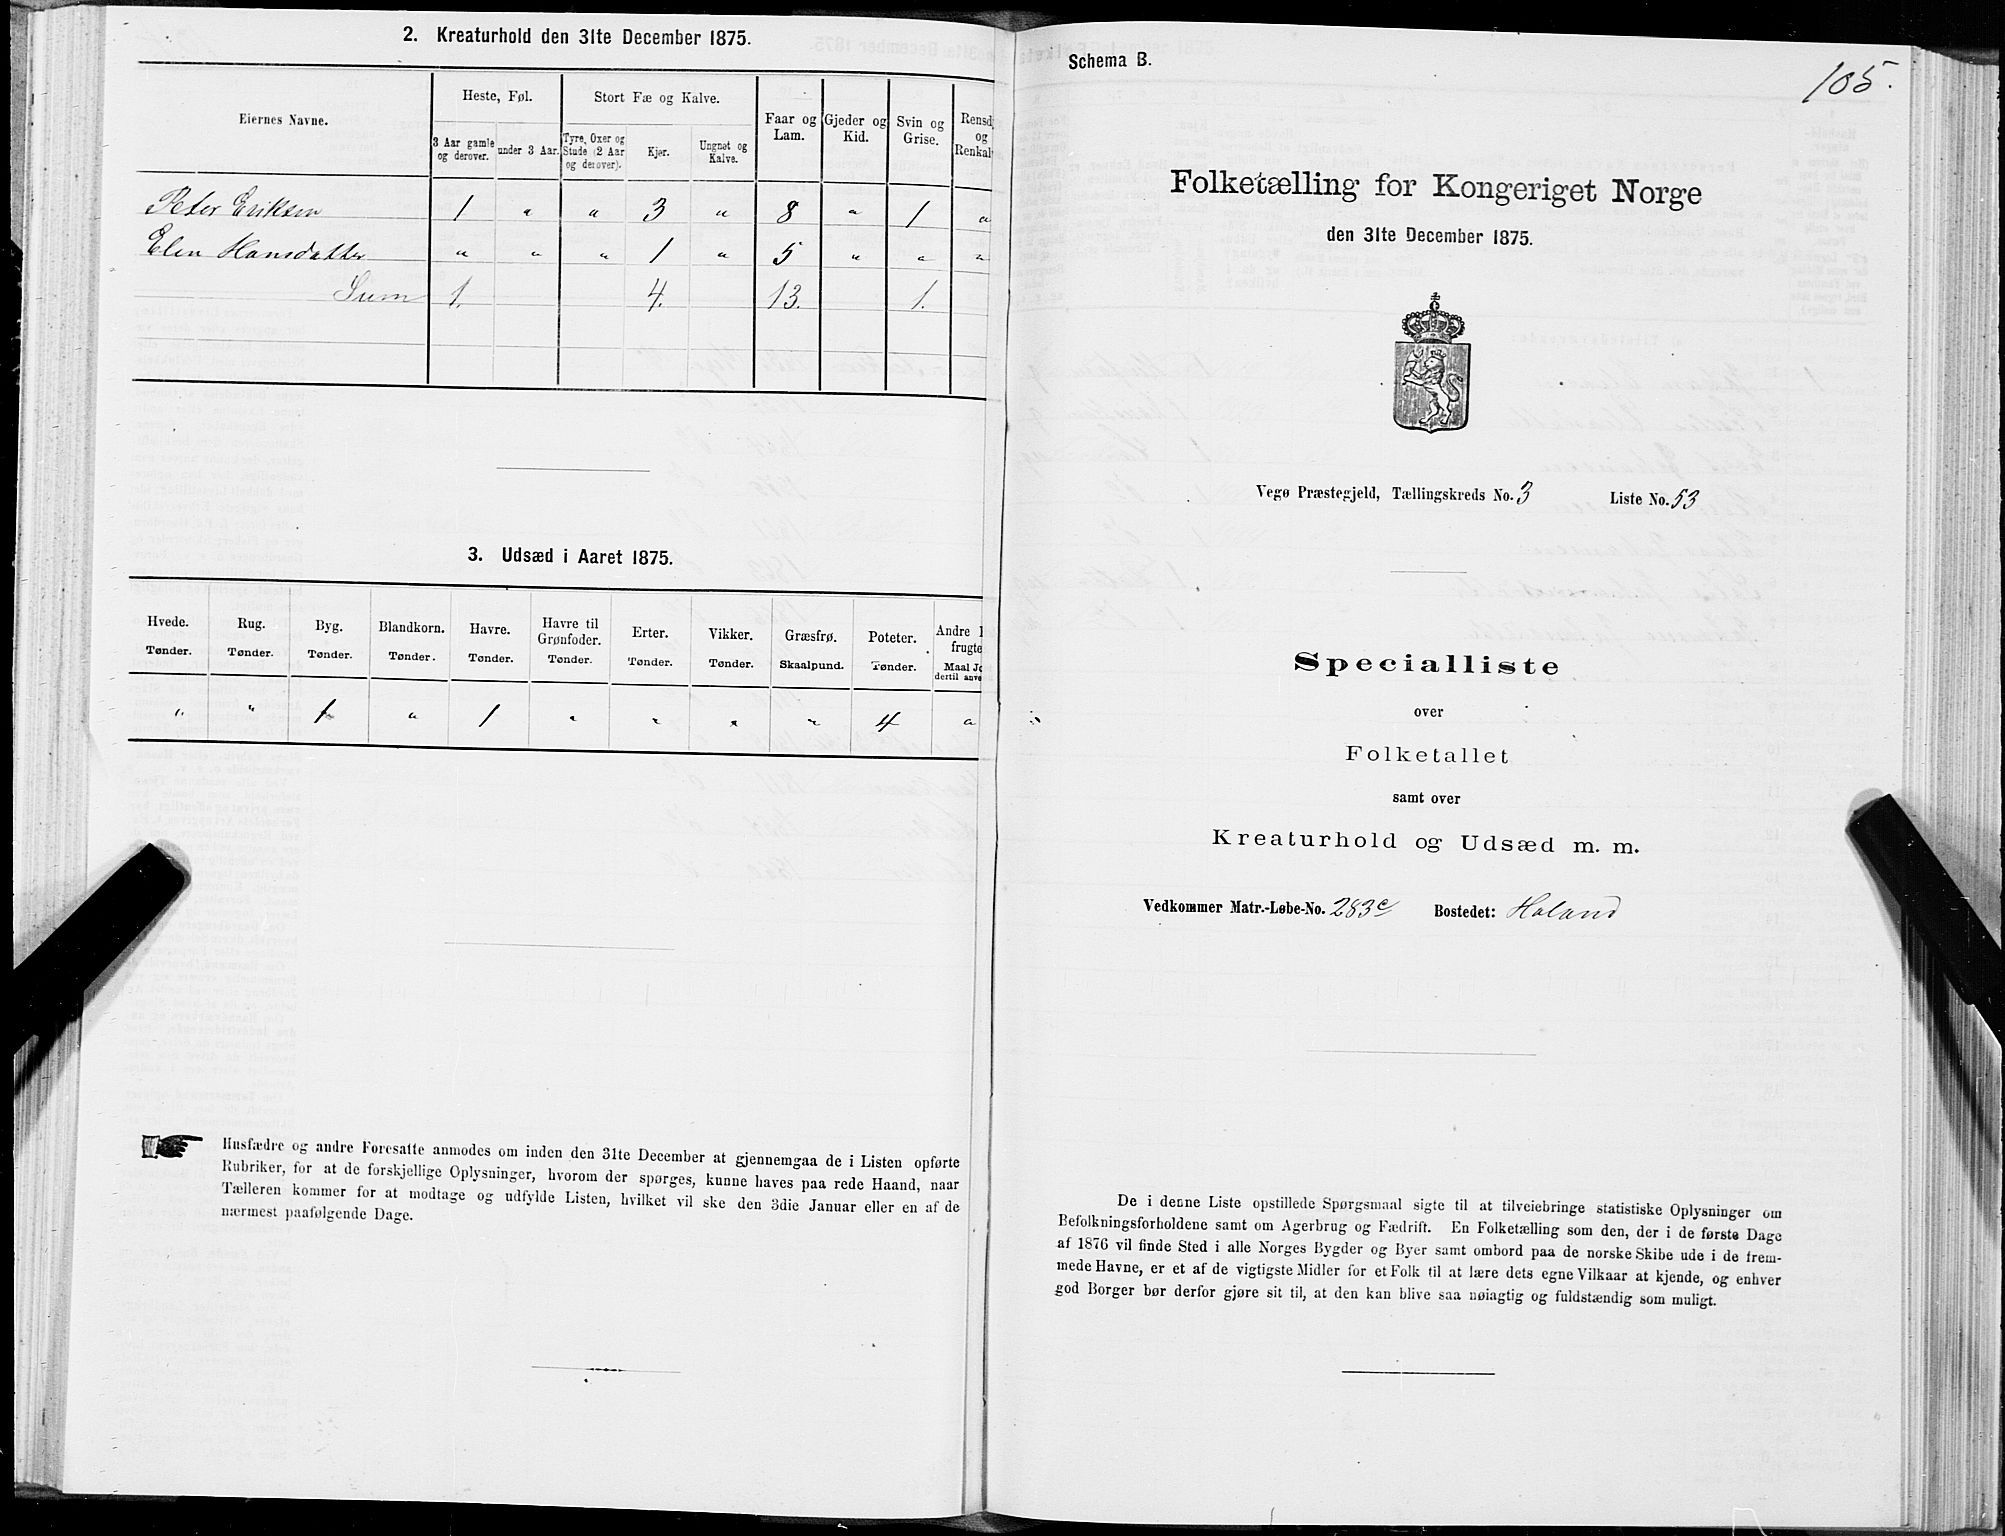 2. Kreaturhold den 31te December 1875.
Eiernes Navne.
Heste, Føl.
Stort Fæ og Kalve.
Faar og Lam.
Gjeder og Kid.
Svin og Grise.
Rensd
og
Renkal
3 Aar gamle og derover.
under 3 Aar.
Tyre, Oxer og Stude (2 Aar og derover).
Kjer.
Ungnøt og Kalve.
Peter Eriksen 1 " " 3 " 8 " 1 "
Elen Hansdatter " " " 1 " 5 " " "
Sum 1. 4. 13. 1.
3. Udsæd i Aaret 1875.
Hvede. Rug. Byg. Blandkorn. Havre. Havre til Grønfoder. Erter. Vikker. Græsfrø. Poteter. Andre
frugte
Tønder. Tønder. Tønder. Tønder. Tønder. Tønder. Tønder. Tønder. Skaalpund. Tønder. Maal Jo
dertil anve
" " 1 " 1 " " " " 4 "
Husfædre og andre Foresatte anmodes om inden den 31te December at gjennemgaa de i Listen opførte
Rubriker, for at de forskjellige Oplysninger, hvorom der spørges, kunne haves paa rede Haand, naar
Tælleren kommer for at modtage og udfylde Listen, hvilket vil ske den 3die Januar eller en af de
nærmest paafølgende Dage.
Schema B.
105.
Folketælling for Kongeriget Norge
den 31te December 1875.
Vegø Præstegjeld, Tællingskreds No. 3 Liste No. 53
Specialliste
over
Folketallet
samt over
Kreaturhold og Udsæd m. m.
Vedkommer Matr.-Løbe-No. 283c Bostedet: Holand
De i denne Liste opstillede Spørgsmaal sigte til at tilveiebringe statistiske Oplysninger om
Befolkningsforholdene samt om Agerbrug og Fædrift. En Folketælling som den, der i de første Dage
af 1876 vil finde Sted i alle Norges Bygder og Byer samt ombord paa de norske Skibe ude i de frem-
mede Havne, er et af de vigtigste Midler for et Folk til at lære dets egne Vilkaar at kjende, og enhver
god Borger bør derfor gjøre sit til, at den kan blive saa nøiagtig og fuldstændig som muligt.